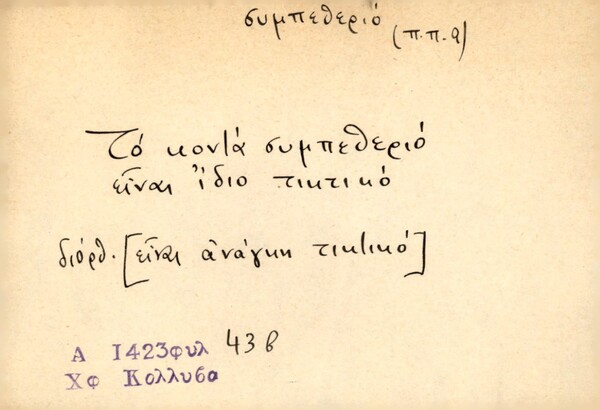 συμπεθεριό (π.π.α)
Τό κοντά συμπεθεριό
εἶναι ἴδιο τικτικό
διόρθ. [εἶναι ἀνάγκη τικτικό]
Α 1423φυλ 43 β
Χφ Κολλυβα